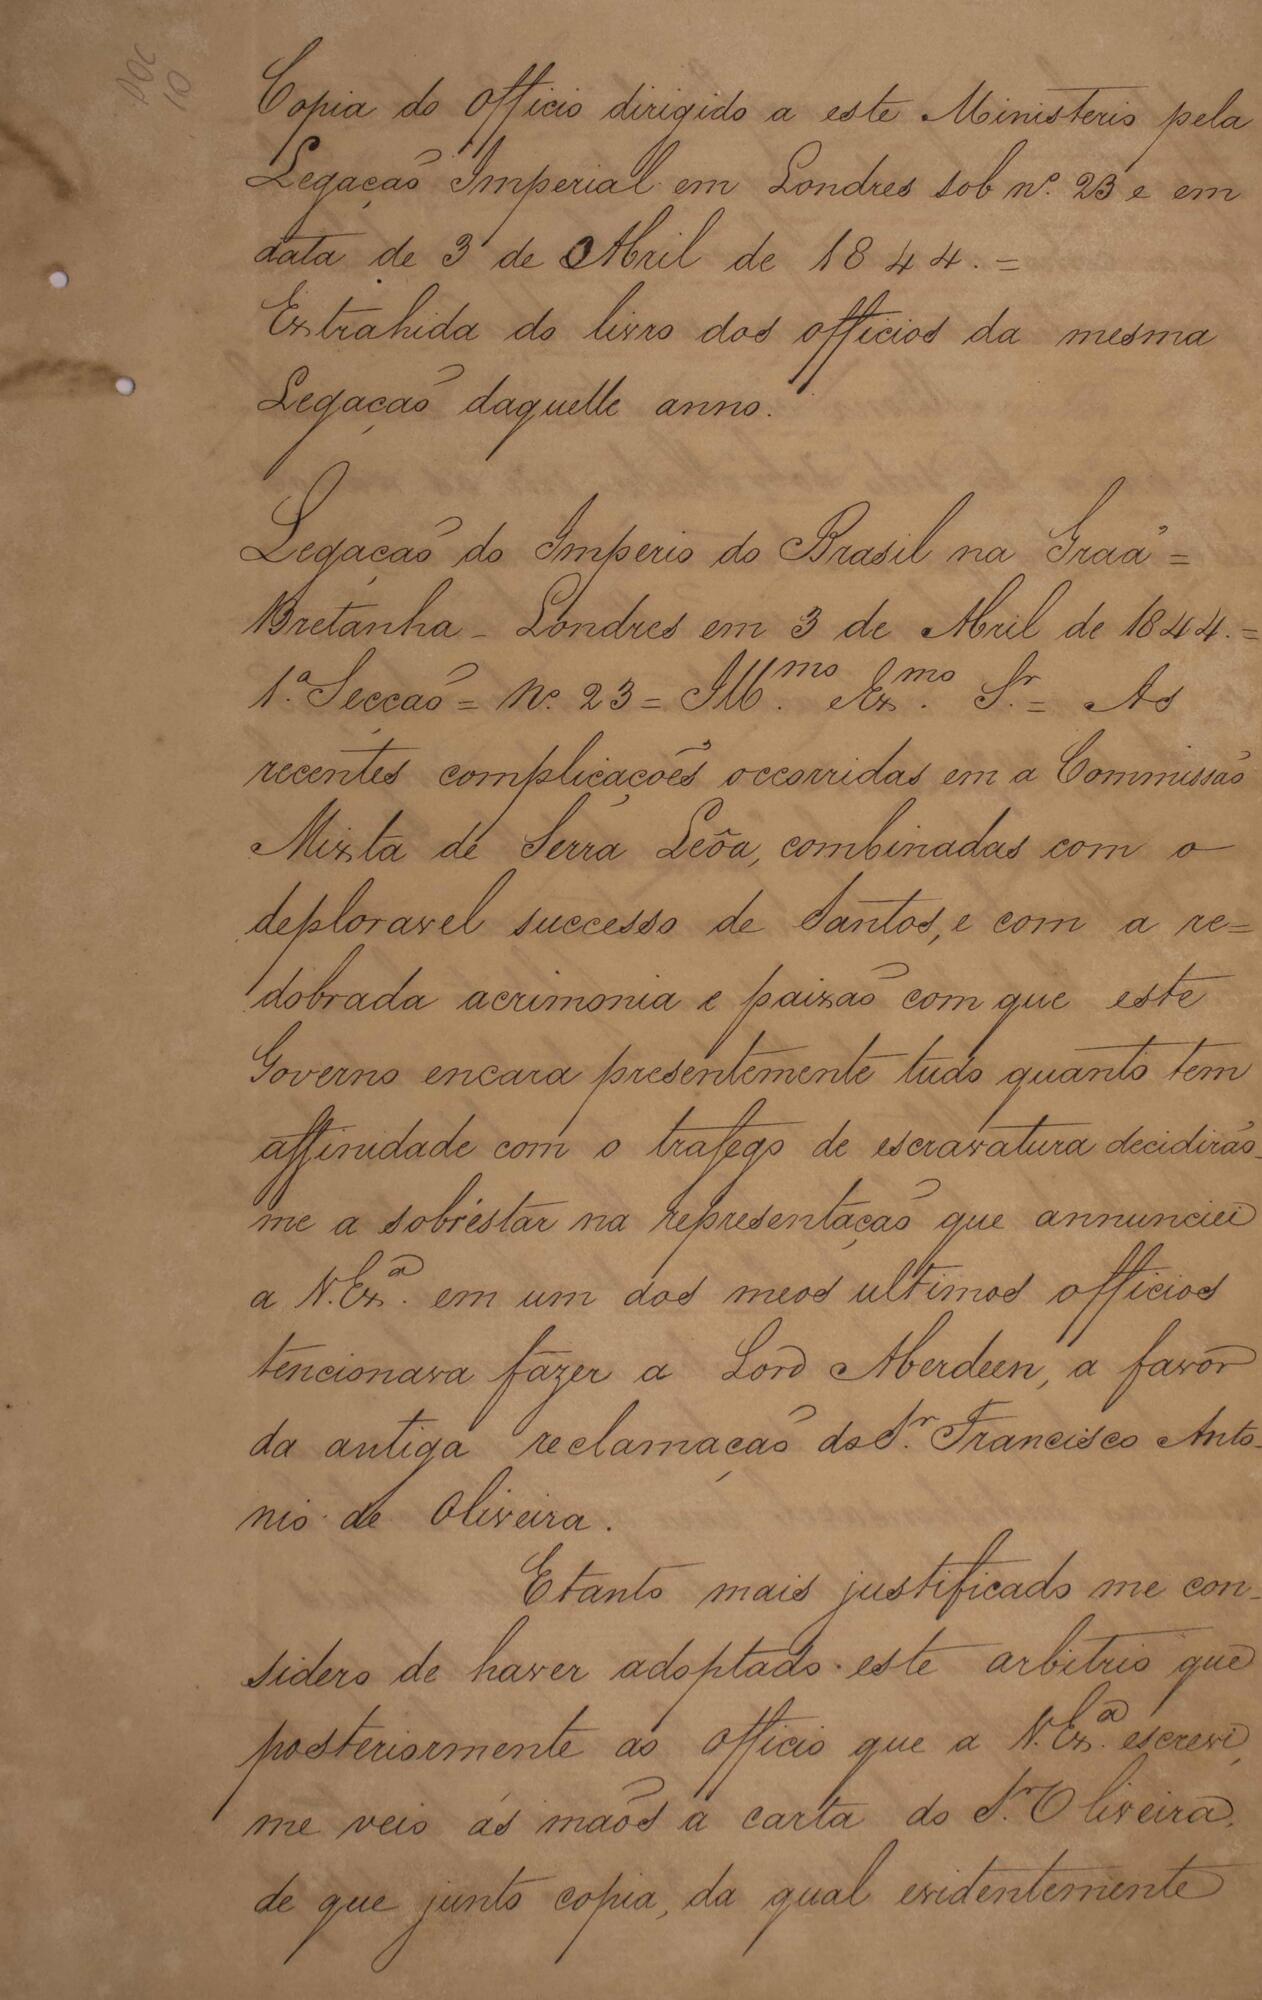 DOC
10
Copia do officio dirigido a este Ministerio pela
Legação Imperial em Londres sob nº. 23 e em
data de 3 de Abril de 1844. =
Extrahida do livro dos officios da mesma
Legação daquelle anno.
Legação do Imperio do Brasil na Graã =
Bretanha _ Londres em 3 de Abril de 1844. =
1.ª Secção = Nº. 23 = Ill.mo Ex.mo S.r = As
recentes complicações occorridas em a Commissão
Mixta de Serra Leôa, combinadas com o
deploravel successo de Santos, e com a re=
dobrada acrimonia e paixão com que este
Governo encara presentemente tudo quanto tem
affinidade com o trafego de escravatura decidirão_
me a sobréstar na representação que annunciei
a V.Ex.ª em um dos meos ultimos officios
tencionava fazer a Lord Aberdeen, a favor
da antiga reclamação do S.r Francisco Anto_
nio de Oliveira.
E tanto mais justificado me con_
sidero de haver adoptado este arbitrio que
posteriormente ao officio que a V.Ex.ª escrevi,
me veio ás mãos a carta do S.r Oliveira,
de que junto copia, da qual evidentemente